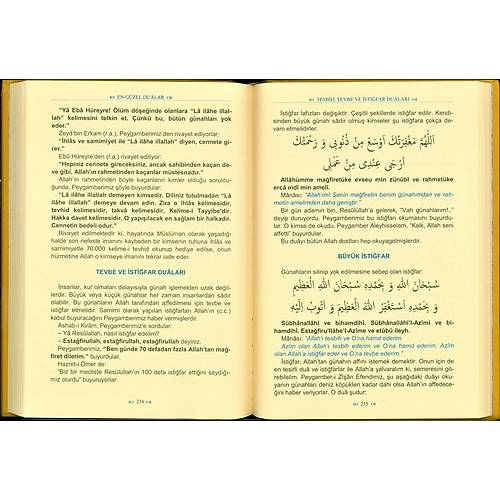 EN GÜZEL DUÂLAR
"Yâ Ebâ Hüreyre! Ölüm döşeğinde olanlara "Lâ ilâhe illal-
lah" kelimesini telkin et. Çünkü bu, bütün günahları yok
eder."
Zeyd bin Erkam (r.a.), Peygamberimiz'den rivayet ediyorlar:
"İhlâs ve samimiyet ile "Lâ ilâhe illallah" diyen, cennete gi-
rer."
Ebû Hüreyre'den (r.a.) rivayet ediliyor:
"Hepiniz cennete gireceksiniz, ancak sahibinden kaçan de-
ve gibi, Allah'ın rahmetinden kaçanlar müstesnadır."
Allah'ın rahmetinden böyle kaçanların kimler olduğu soruldu-
ğunda, Peygamberimiz şöyle buyurdular:
"Lâ ilâhe illallah" demeyenlerdir. Diliniz tutulmadan "Lâ
ilâhe illallah" demeye devam edin. Zira o ihlâs kelimesidir,
tevhid kelimesidir, takvâ kelimesidir, Kelime-i Tayyibe'dir.
Hakka davet kelimesidir. O yapışılacak en sağlam bir halkadır.
Cennetin bedeli odur."
Rivayet edilmektedir ki, hayatında Müslüman olarak yaşadığı
halde son nefeste imanını kaybeden bir kimsenin ruhuna ihlâs ve
samimiyetle 70.000 kelime-i tevhid okunup hediye edilse, onun
hürmetine Allah o kimseye imanını tekrar iade eder.
TEVBE VE İSTİĞFAR DUÂLARI
İnsanlar, kul olmaları dolayısıyla günah işlemekten uzak değil-
lerdir. Büyük veya küçük günahlar her zaman insanlardan sâdır
olabilir. Bu günahların Allah tarafından affedilmesi için tevbe ve
istiğfar etmelidir. Samimi olarak yapılan istiğfarları Allah'ın (c.c.)
kabul buyuracağını Peygamberimiz haber vermişlerdir.
Ashab-ı Kirâm, Peygamberimiz'e sordular:
– Yâ Resûlallah, nasıl istiğfar edelim?
– Estağfirullah, estağfirullah, estağfirullah deyiniz.
Peygamberimiz, "Ben günde 70 defadan fazla Allah'tan mağ-
firet dilerim." buyurdular.
Hazret-i Ömer de:
"Biz bir mecliste Resûlüllah'ın 100 defa istiğfar ettiğini saydığı-
mız olurdu" buyuruyorlar.
234
TESBİH, TEVBE VE İSTİĞFAR DUÂLARI
İstiğfar lafızları değişiktir. Çeşitli şekillerde istiğfar edilir. Kendi-
sinden büyük günah sâdır olmuş kimseler şu istiğfara çokça de-
vam etmelidirler:
اَللّٰهُمَّ مَغْفِرَتُكَ اَوْسَعُ مِنْ ذُنُوبِى وَ رَحْمَتُكَ
اَرْجَى عِنْدِى مِنْ عَمَلِى
Allâhümme mağfiretüke evseu min zünûbî ve rahmetüke
ercâ ındî min amelî.
Mânâsı: Allah'ım! Senin mağfiretin benim günahımdan ve rah-
metin amelimden daha geniştir."
Bir gün adamın biri, Resûlüllah'a gelerek, "Vah günahlarım!.."
dedi. Peygamberimiz şu yukarıdaki istiğfarı okumasını buyurdu-
lar. O kimse de okudu. Peygamber Aleyhisselam, "Kalk, Allah seni
affetti" buyurdular.
Bu duâyı bütün Allah dostları hep okuyagelmişlerdir.
BÜYÜK İSTİĞFAR
Günahların silinip yok edilmesine sebep olan istiğfar:
سُبْحَانَ اللّٰهِ وَ بِحَمْدِهِ سُبْحَانَ اللّٰهِ الْعَظِيمِ
وَ بِحَمْدِهِ اَسْتَغْفِرُ اللّٰهَ الْعَظِيمَ وَ اَتُوبُ اِلَيْهِ
Sübhânallâhi ve bihamdihî. Sübhânallâhi'l-Azîmi ve bi-
hamdihî. Estağfiru'llâhe'l-Azîme ve etûbü ileyh.
Mânâsı: "Allah'ı tesbih ve O'na hamd ederim.
Azîm olan Allah'ı tesbih ederim ve O'na hamd ederim. Azîm
olan Allah'a istiğfar eder ve O'na tevbe ederim."
İstiğfar, Allah'tan günahın affını istemek demektir. Onun için de
en tesirli duâ ve istiğfarlar ile Allah'a yalvaralım ki, semeresini gö-
rebilelim. Peygamber-i Zîşân Efendimiz, şu aşağıdaki duâyı oku-
yanın günahları deniz köpükleri kadar dahi olsa Allah'ın affedece-
ğini haber veriyorlar. O duâ şudur:
235